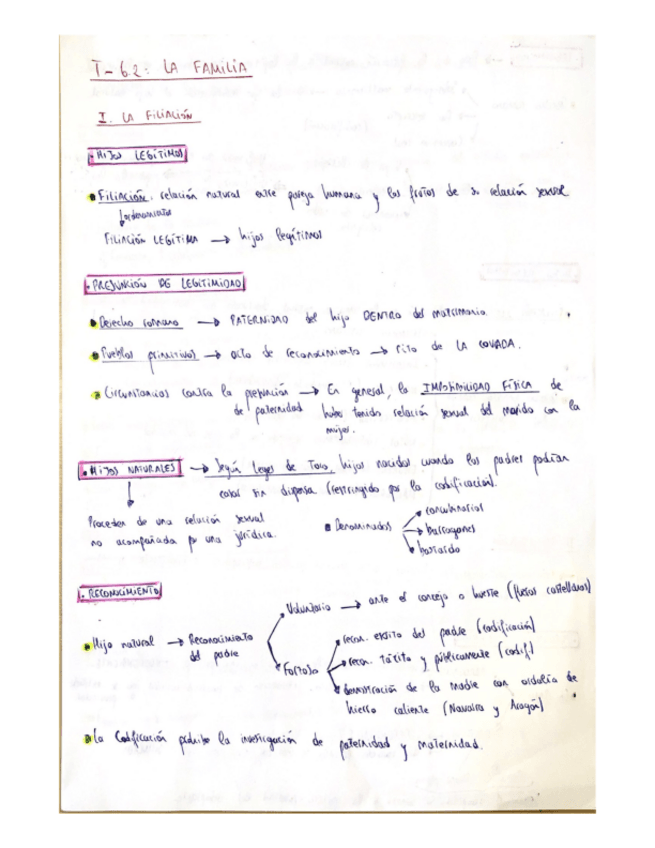 T-62: LA FAMILIA
I. LA FILIACIÓN
· HIJOS LEGÍTIMOS
Filiación: relación natural entre pareja humana y los frutos de su relación sexual
FILIACIÓN LEGÍTIMA → hijos legítimos
· PRESUNCIÓN DE LEGITIMIDAD
Derecho romano → PATERNIDAD del hijo DENTRO del matrimonio.
Pueblos primitivos → acto de reconocimiento → rito de LA COVADA.
Circunstancias contra la presunción → En general, la IMPOSIBILIDAD FÍSICA de
de paternidad haber tenido relación sexual del marido con la
mujer.
· HIJOS NATURALES → Según Leyes de Toro, hijos nacidos cuando los padres podían
casar sin dispensa (restringido por la codificación).
Proceden de una relación sexual
no acompañada por una jurídica.
Denominados
→ barraganes
bastardo
· RECONOCIMIENTO
Voluntario → ante el concejo o hueste (fueros castellanos)
Hijo natural → Reconocimiento
del padre
Forzoso
recon. escrito del padre (codificación)
recon. tácito y públicamente (codif.)
demostración de la madre con ordalía de
hierro caliente (Navarra y Aragón)
La Codificación prohibe la investigación de paternidad y maternidad.